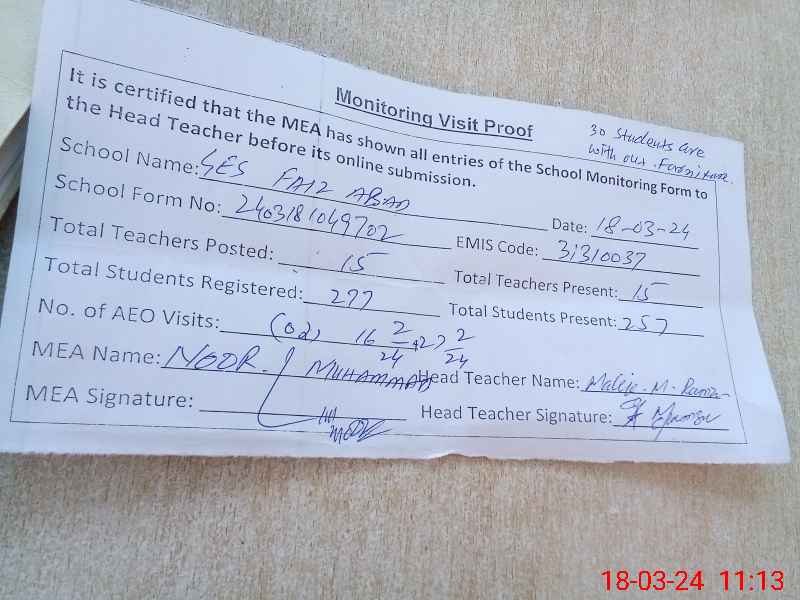 Monitoring Visit Proof
30 Students are
with out Furniture.
It is certified that the MEA has shown all entries of the School Monitoring Form to
the Head Teacher before its online submission.
School Name: GES FAIZ ABAD Date: 18-03-24
School Form No: 2403181049702 EMIS Code: 31310037
Total Teachers Posted: 15 Total Teachers Present: 15
Total Students Registered: 277 Total Students Present: 257
No. of AEO Visits: (02) 16 2/24 + 27 2/24
MEA Name: NOOR MUHAMMAD Head Teacher Name: Malik M.
MEA Signature: Head Teacher Signature:
18-03-24 11:13